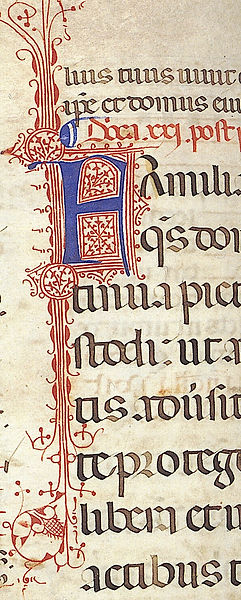 lius tuus uiuit
ip̄e et domus eiu
Dn̄ca xxi. post p
FAmilia
q̄s dom
tinua piet
stodi: ut a
tis aduūsit
te proteg
libera et i
actibus t